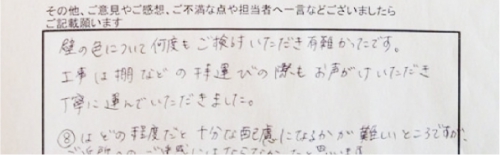 その他、ご意見やご感想、ご不満な点や担当者へ一言などございましたら
ご記載願います
壁の色について何度もご検討いただき有難かったです。
工事は棚などの持運びの際もお声がけいただき
丁寧に運んでいただきました。
⑧はどの程度だと十分な配慮になるかが難しいところですが、
ご近所へのご迷惑にはならなかったと思います